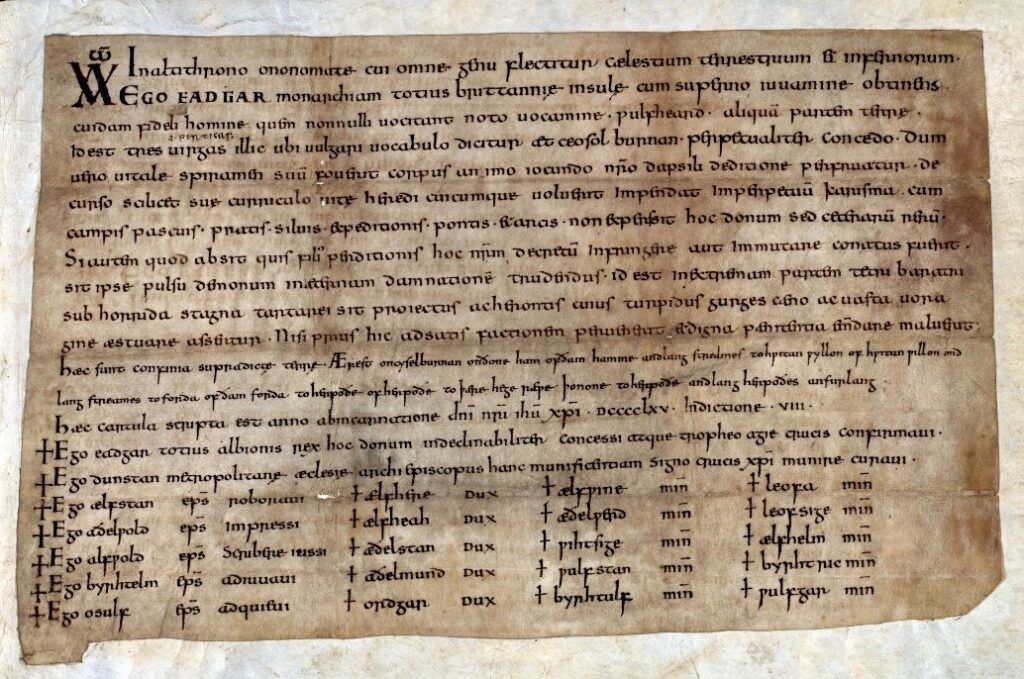 In alti throno onomate cui omne genu flectitur cælestium terrestrium & infernorum.
EGO EADGAR monarchiam totius brittannie insule cum superno iuuamine obtinens.
cuidam fideli homine quem nonnulli uocitant noto uocamine. ƿulfheard. aliquā partem terre.
id est tres uirgas illic ubi uulgari uocabulo dicitur æt ceosol burnan. perpetualiter concedo. Dum
uero uitale spiramen suū fouerit corpus animo iocundo nr̄o dapsili deditione perfruatur. de
curso scilicet sue curriculo uite heredi cuicumque uoluerit impendat inperpetuū karisma. cum
campis pascuis. pratis. siluis. expeditionis. pontis. & arcis. non expers sit hoc donum sed ceterarū rerū.
Si autem quod absit quis filiꝰ perditionis hoc nr̄um decretū infringere aut immutare conatus fuerit.
sit ipse pulsu demonum in æternam damnationē trudendus. id est in extremam partem tetri baratri
sub horrida stagna tartarei sit proiectus acherontis cuius turpidus gurges ceno ac uasta uora
gine æstuare asseritur. Nisi prius hic ad satis factionem peruenerit & digna penitentia emendare maluerit;
Hæc sunt confinia supradicte terre. Ærest on cyselburnan on done ham of dam hamme andlang streames to hƿitan fyllon of hƿitan fillon and
lang streames to forda of dam forda to herpode of herpode to þære hege ræƿe þonone to herpode andlang herpodes an furlang.
Hæc cartula scripta est anno ab incarnatione dn̄i nr̄i ihū xp̄i. DCCCCLXV. Indictione. VIII.
+ Ego eadgar totius albionis rex hoc donum indeclinabiliter concessi atque tropheo agie crucis confirmaui.
+ Ego dunstan metropolitane æclesie archi episcopus hanc munificentiam signo crucis xp̄i munire curaui.
+ Ego ælfstan ep̄s roboraui + ælfhere dux + ælfƿine min̄ + leofa min̄
+ Ego adelƿold ep̄s impressi + ælfheah dux + ædelƿerd min̄ + leofsige min̄
+ Ego alfƿold ep̄s scribere iussi + ædelstan dux + ƿihtsige min̄ + ælfhelm min̄
+ Ego byrhtelm ep̄s adiuuaui + adelmund dux + ƿulfstan min̄ + byrhtric min̄
+ Ego osulf ep̄s adquieui + ordgar dux + byrhtulf min̄ + ƿulfgar min̄